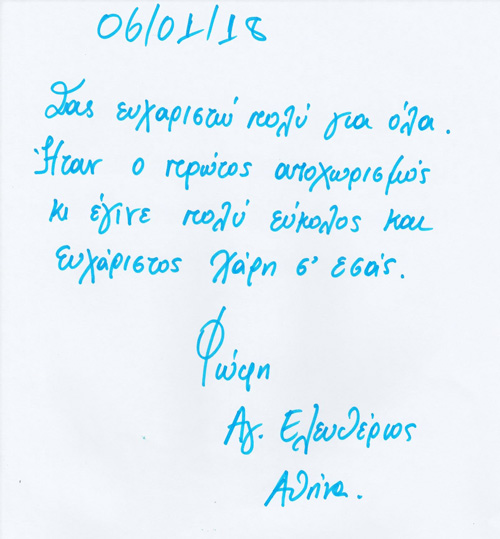 06/01/18
Σας ευχαριστώ πολύ για όλα.
Ήταν ο πρώτος αποχωρισμός
κι έγινε πολύ εύκολος και
ευχάριστος χάρη σ' εσάς.
Φώφη
Αγ. Ελευθέριος
Αθήνα.